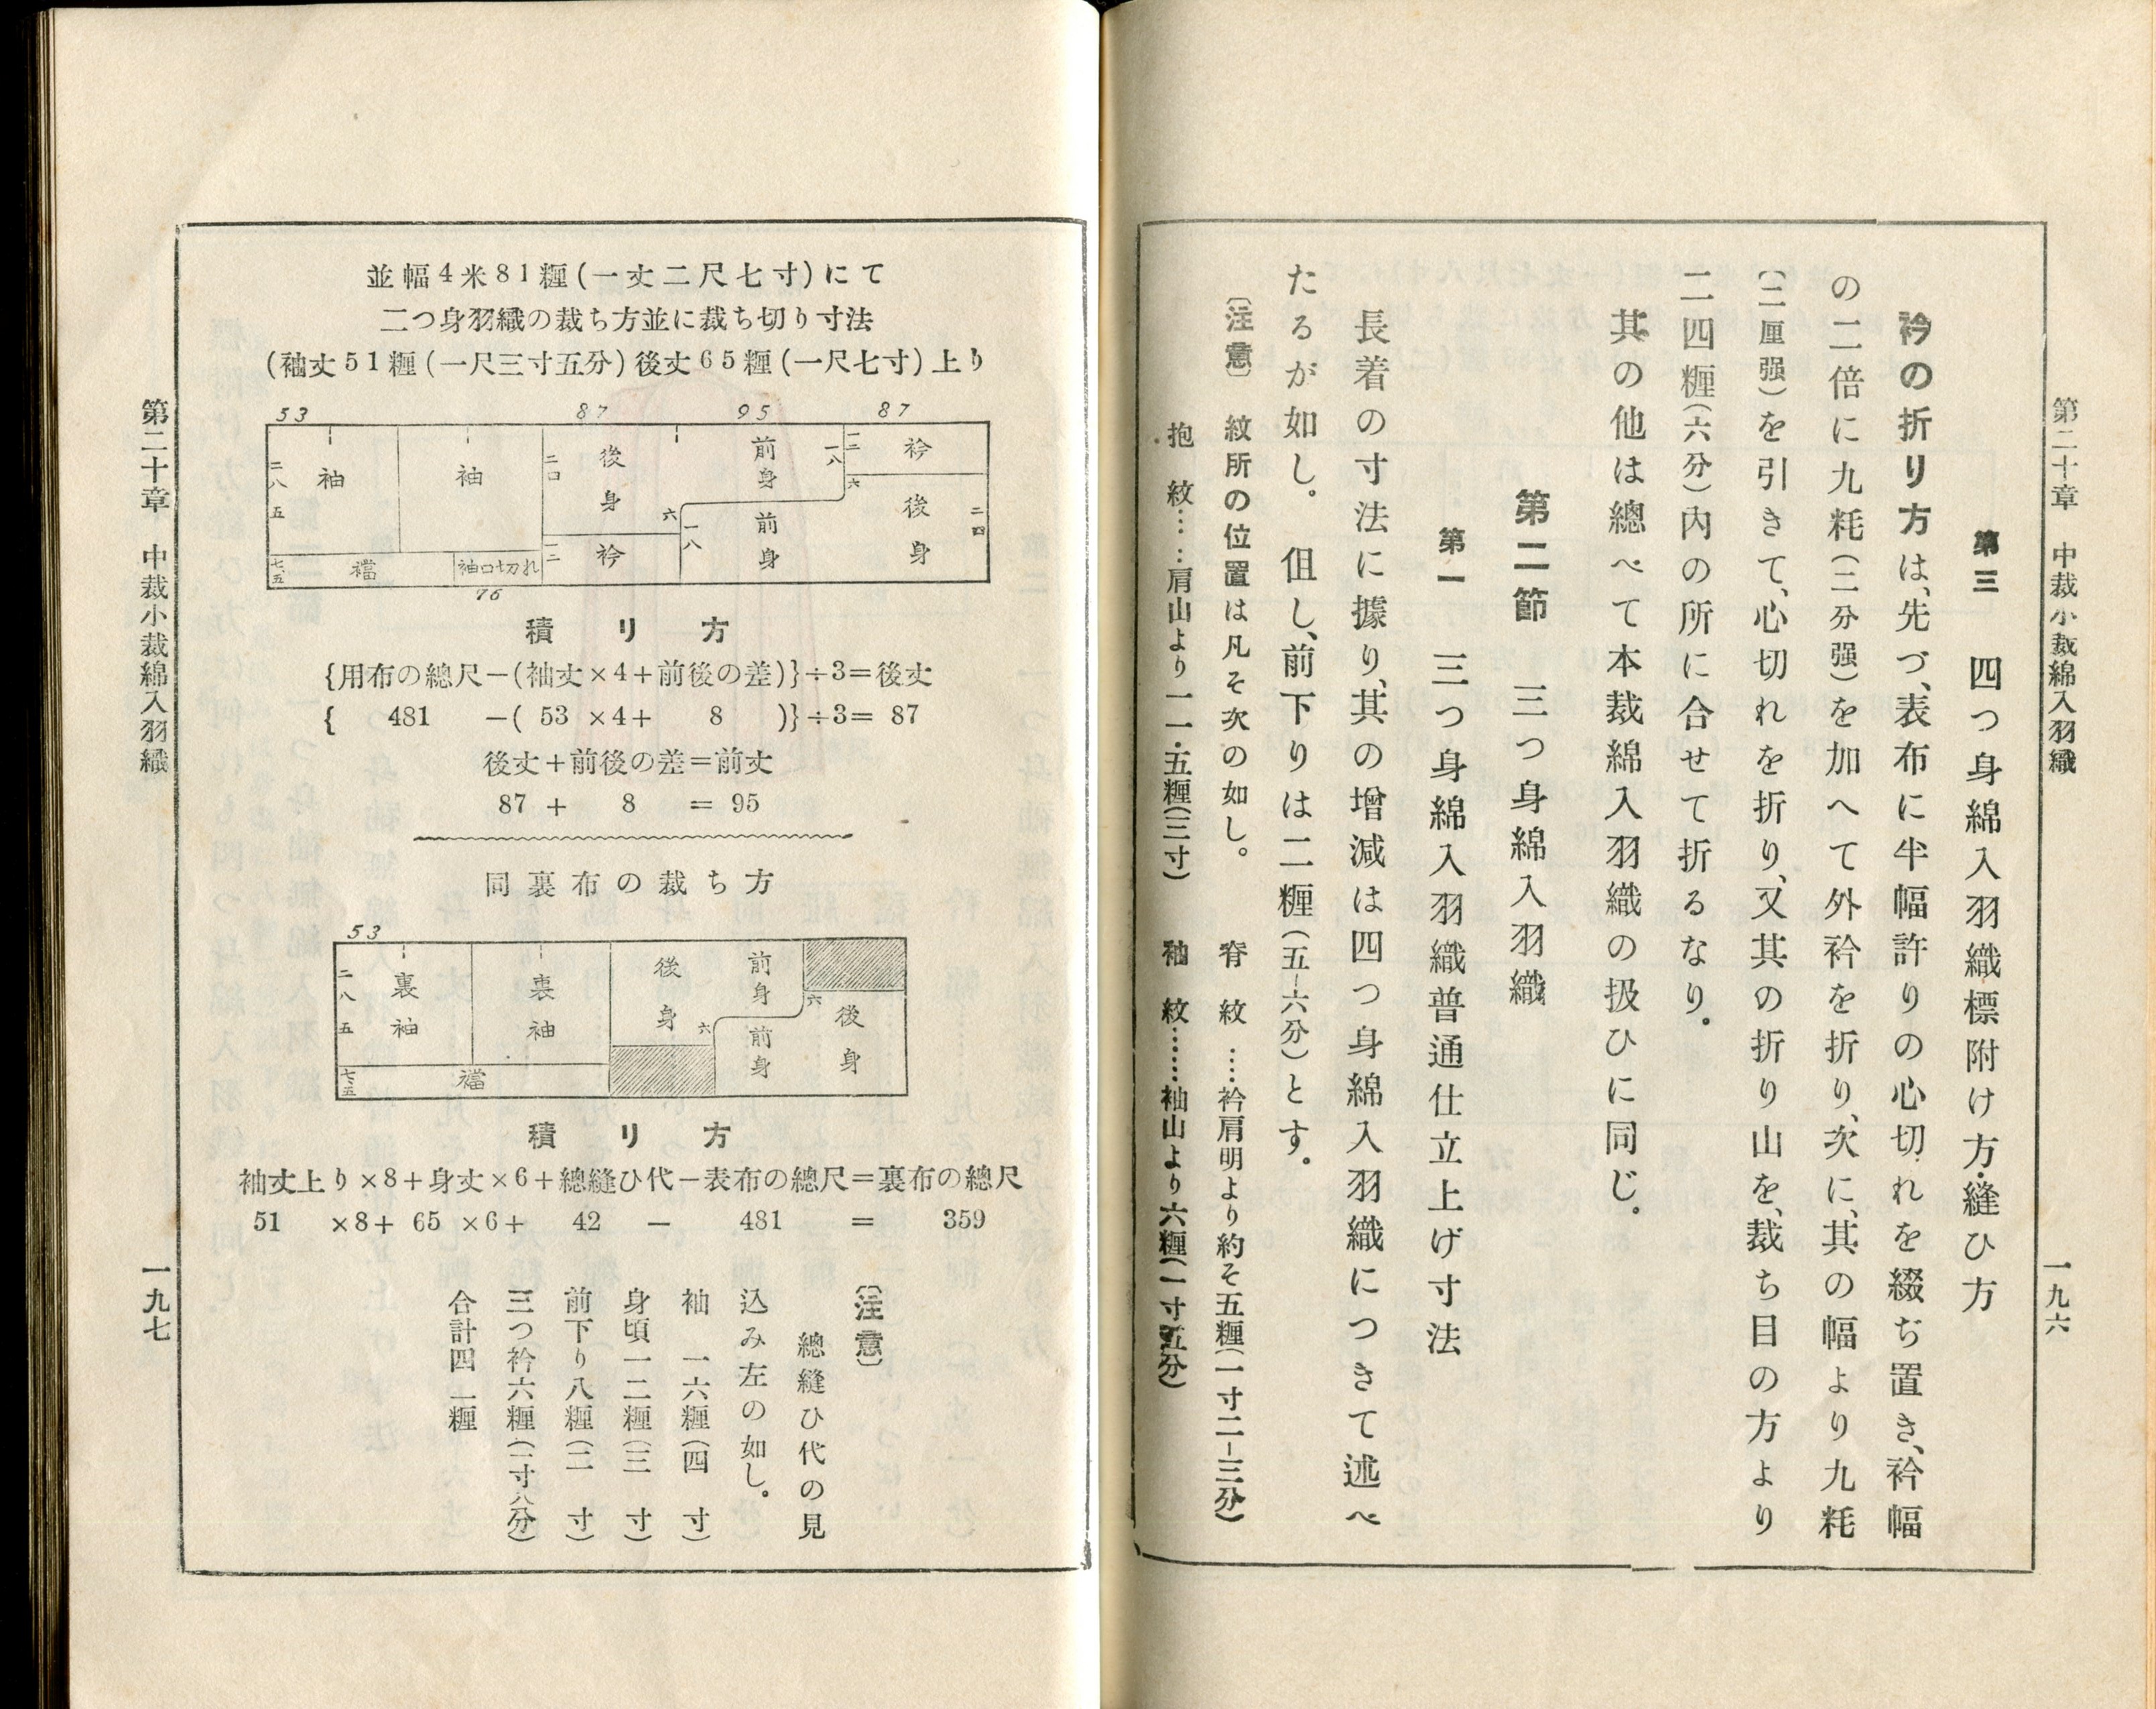 第二十章　中裁小裁綿入羽織
一九六
第三　四つ身綿入羽織標附け方・縫ひ方
衿の折り方は、先づ、表布に半幅許りの心切れを綴ぢ置き、衿幅
の二倍に九粍(二分强)を加へて外衿を折り、次に、其の幅より九粍
(二厘强)を引きて、心切れを折り、又其の折り山を、裁ち目の方より
二四糎(六分)内の所に合せて折るなり。
其の他は總べて本裁綿入羽織の扱ひに同じ。
第二節　三つ身綿入羽織
第一　三つ身綿入羽織普通仕立上げ寸法
長着の寸法に據り、其の增減は四つ身綿入羽織につきて述べ
たるが如し。　伹し、前下りは二糎(五—六分)とす。
〔注意〕　紋所の位置は凡そ次の如し。　脊　紋……衿肩明より約そ五糎(一寸二—三分)
抱　紋……肩山より一一・五糎(三寸)　袖　紋……袖山より六糎(一寸五分)
並幅4米81糎(一丈二尺七寸)にて
二つ身羽織の裁ち方並に裁ち切り寸法
(袖丈51糎(一尺三寸五分)後丈65糎(一尺七寸)上り
53　87　95　87
袖　袖　後身　前身　衿
二八五　二〇　一八　一二　六
六　一八　前身　後身　二四
七.五　襠　袖口切れ　一二　衿
76
積り方
{用布の總尺−(袖丈×4+前後の差)}÷3=後丈
{　481　−(　53　×4+　8　)}÷3=　87
後丈+前後の差=前丈
87　+　8　=　95
同裏布の裁ち方
53
二八五　裏袖　裏袖　後身　前身
六　六　前身　後身
七.五　襠
積り方
袖丈上り×8+身丈×6+總縫ひ代−表布の總尺=裏布の總尺
51　×8+　65　×6+　42　−　481　=　359
〔注意〕
總縫ひ代の見
込み左の如し。
袖　一六糎(四　寸)
身頃一二糎(三　寸)
前下り八糎(二　寸)
三つ衿六糎(一寸八分)
合計四二糎
第二十章　中裁小裁綿入羽織
一九七